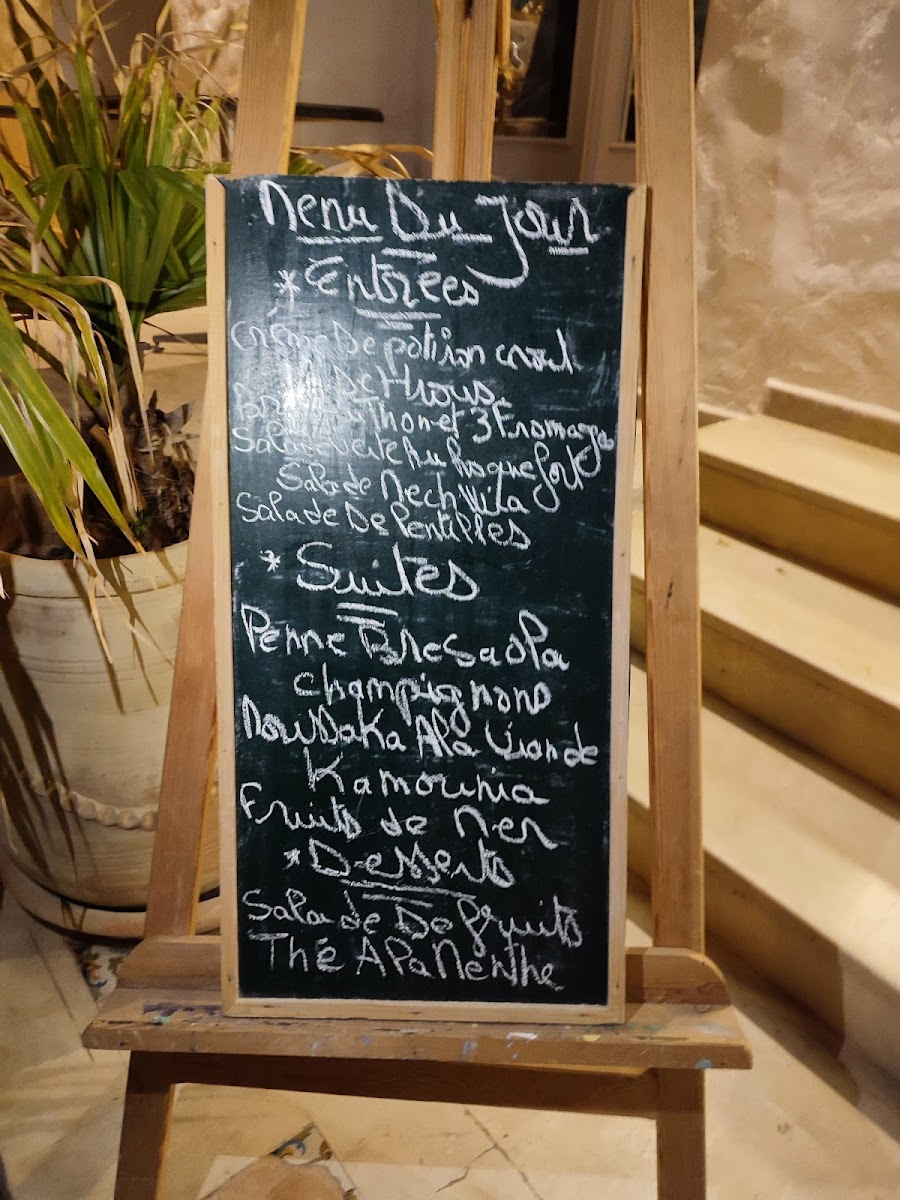 Menu Du Jour
* Entrées
Crème De potiron crout
De Hrous
Thon et 3 Fromages
Salade verte Au Roquefort
Salade Mechwia
Salade De Lentilles
* Suites
Penne Bresaola
champignons
Moussaka A la Viande
Kamounia
Fruits de Mer
* Desserts
Salade De fruits
Thé A la Menthe